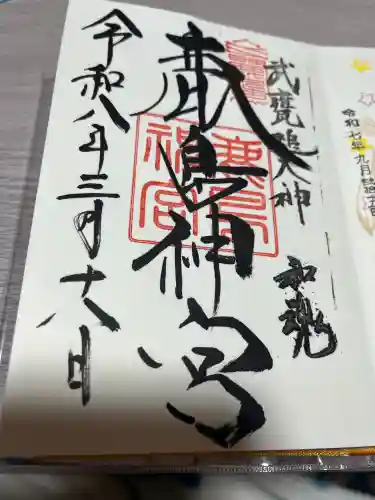 武甕槌大神
和魂
鹿島神宮
令和八年三月十八日
令和七年九月